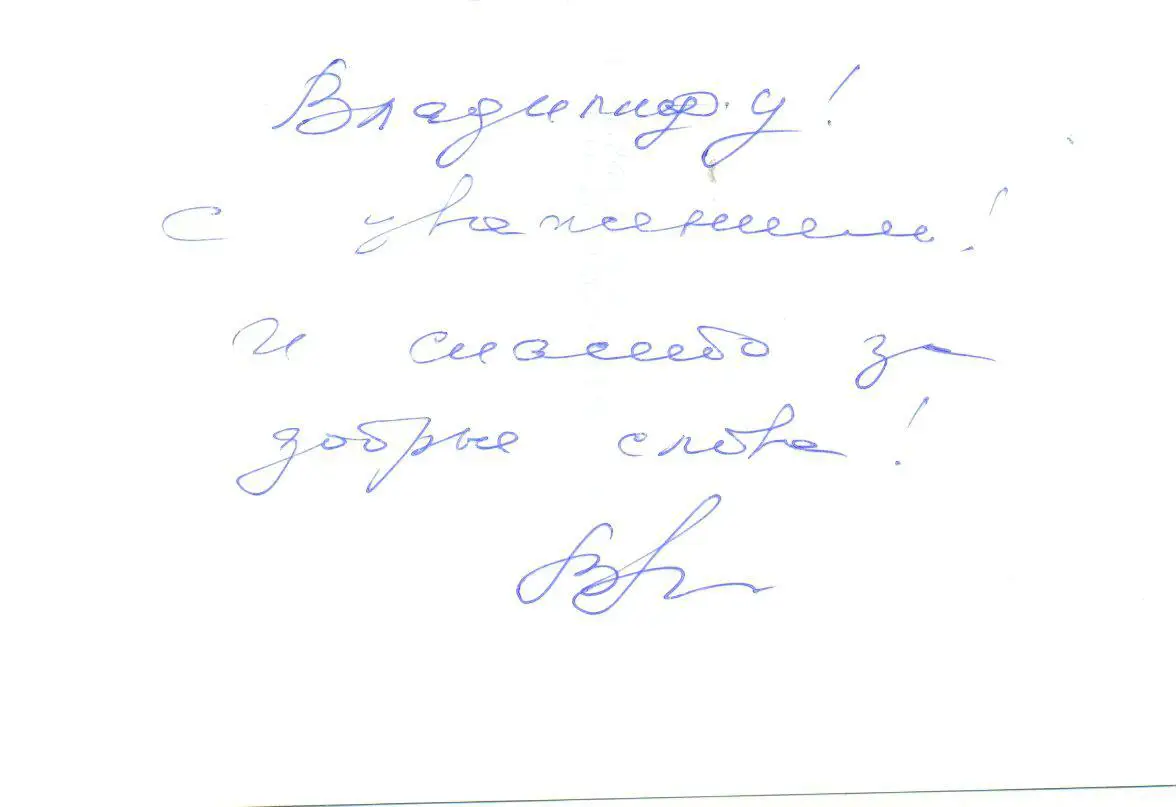 Владимиру!
С уважением!
И спасибо за
добрые слова!